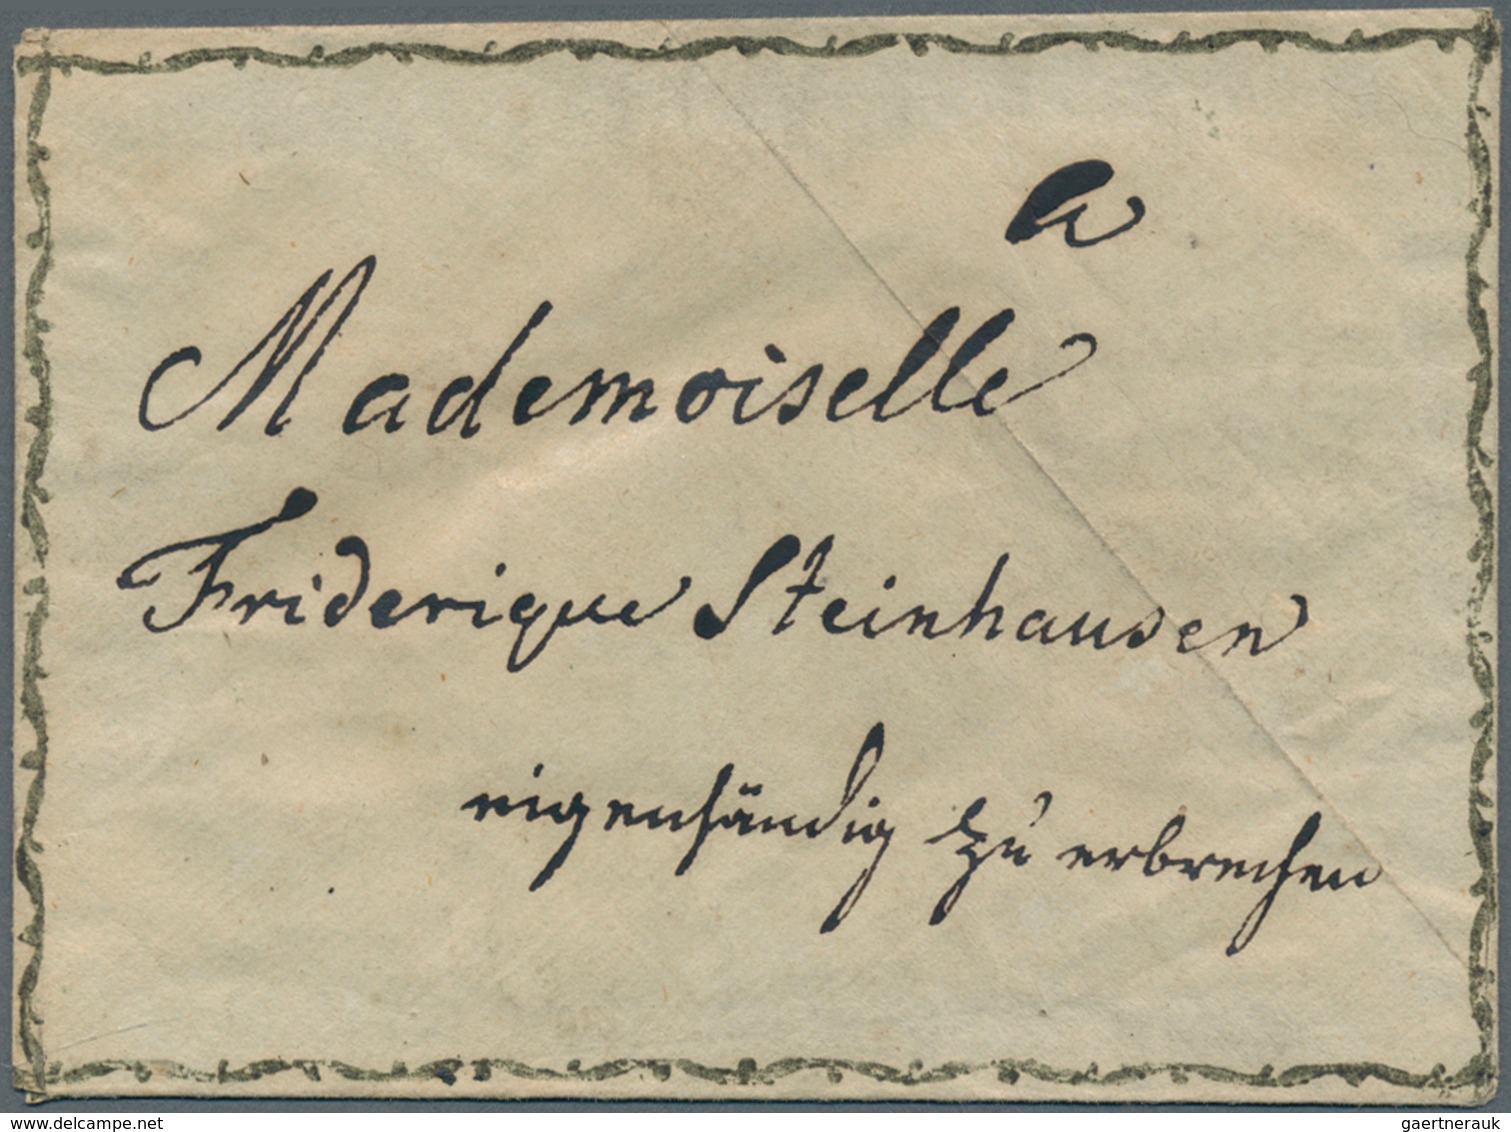 a
Mademoiselle
Friderique Steinhausen
eigenhändig zu erbrechen
delcampe.net
gaertnerauk